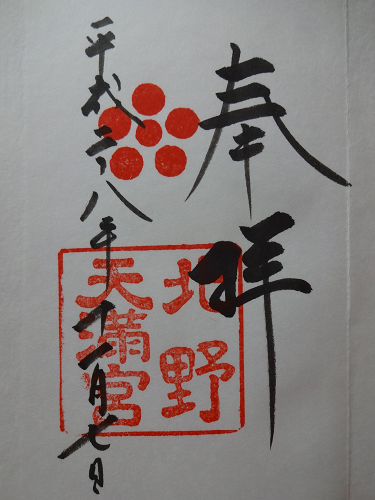 奉拝
北野
天満宮
平成二八年十一月七日